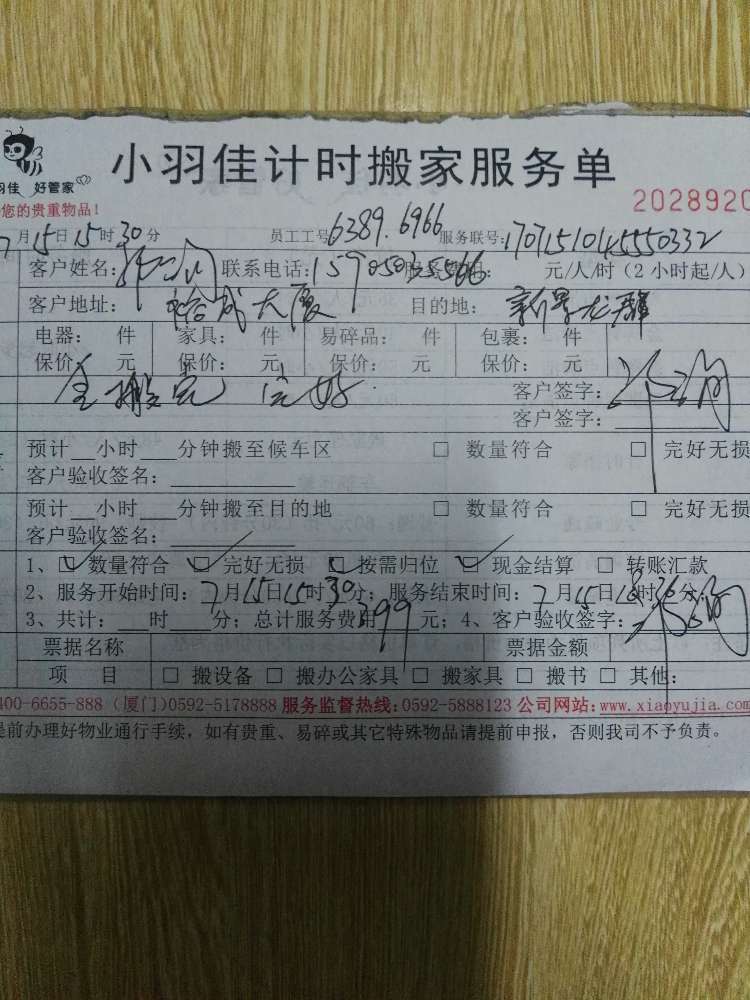 小羽佳计时搬家服务单
羽佳 好管家
您的贵重物品! 2028920
7月15日15时30分 员工工号6389.6966 服务联号:17071510145550332
客户姓名: 联系电话: 元/人/时(2小时起/人)
客户地址: 大厦 目的地: 新景龙
电器: 件 家具: 件 易碎品: 件 包裹: 件
保价: 元 保价: 元 保价: 元 保价: 元
全搬完 完好 客户签字:
客户签字:
预计__小时___分钟搬至候车区 □ 数量符合 □ 完好无损
客户验收签名:
预计__小时___分钟搬至目的地 □ 数量符合 □ 完好无损
客户验收签名:
1、☑ 数量符合 ☑ 完好无损 ☑ 按需归位 ☑ 现金结算 □ 转账汇款
2、服务开始时间:7月15日15时30分; 服务结束时间:7月15日18时 分;
3、共计:___时___分; 总计服务费用399元; 4、客户验收签字:
票据名称 票据金额
项 目 □ 搬设备 □ 搬办公家具 □ 搬家具 □ 搬书 □ 其他:
400-6655-888(厦门)0592-5178888 服务监督热线:0592-5888123 公司网站:www.xiaoyujia.com
提前办理好物业通行手续,如有贵重、易碎或其它特殊物品请提前申报,否则我司不予负责。